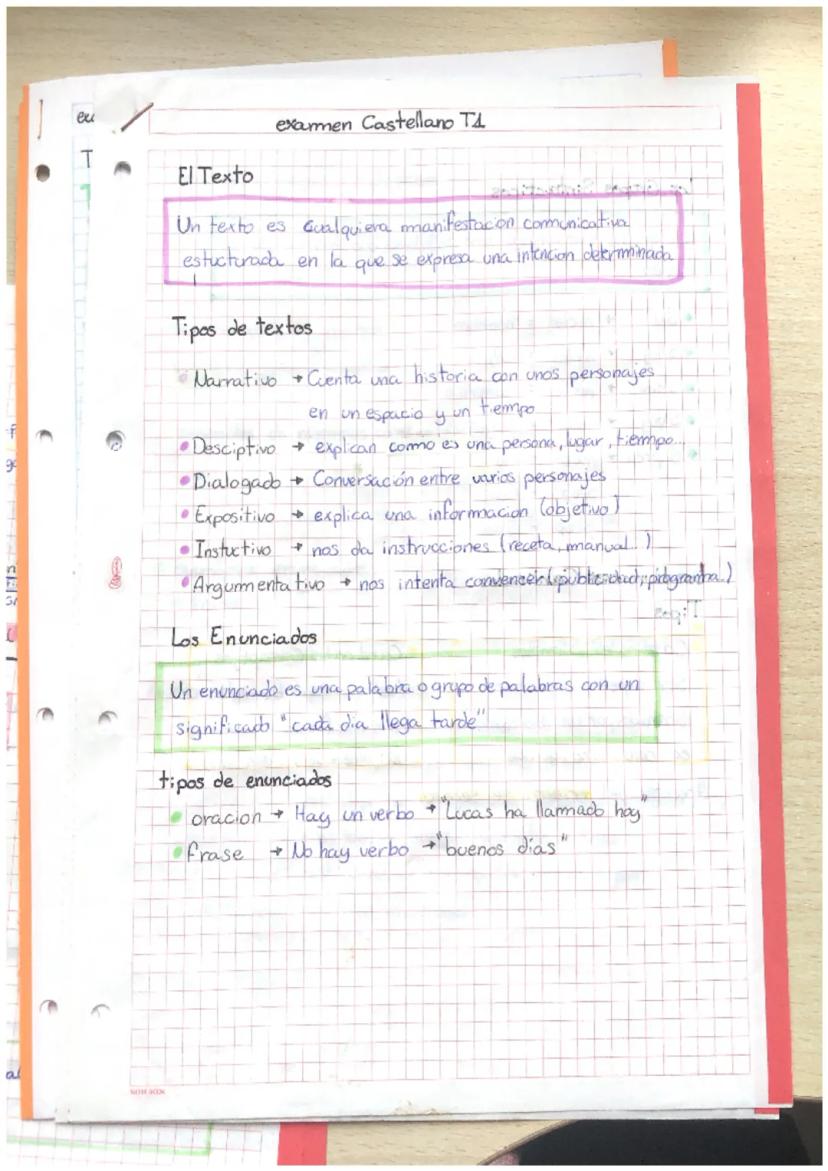 examen Castellano T1
El Texto
Un texto es cualquiera manifestacion comunicativa
estucturada en la que se expresa una intencion determinada
Tipos de textos
Narrativo → Cuenta una historia con unos personajes
en un espacio y un tiempo
Desciptivo → explican como es una persona, lugar, tiempo...
Dialogado → Conversación entre varios personajes
Expositivo → explica una informacion (objetivo)
Instuctivo → nos da instrucciones (receta, manual..)
Argumentativo → nos intenta convencer (publicidad, programa..)
Los Enunciados
Un enunciado es una palabra o grupo de palabras con un
significado "cada dia llega tarde"
tipos de enunciados
oracion → Hay un verbo → "Lucas ha llamado hoy"
frase → No hay verbo → "buenos dias"
NOTE BOOK